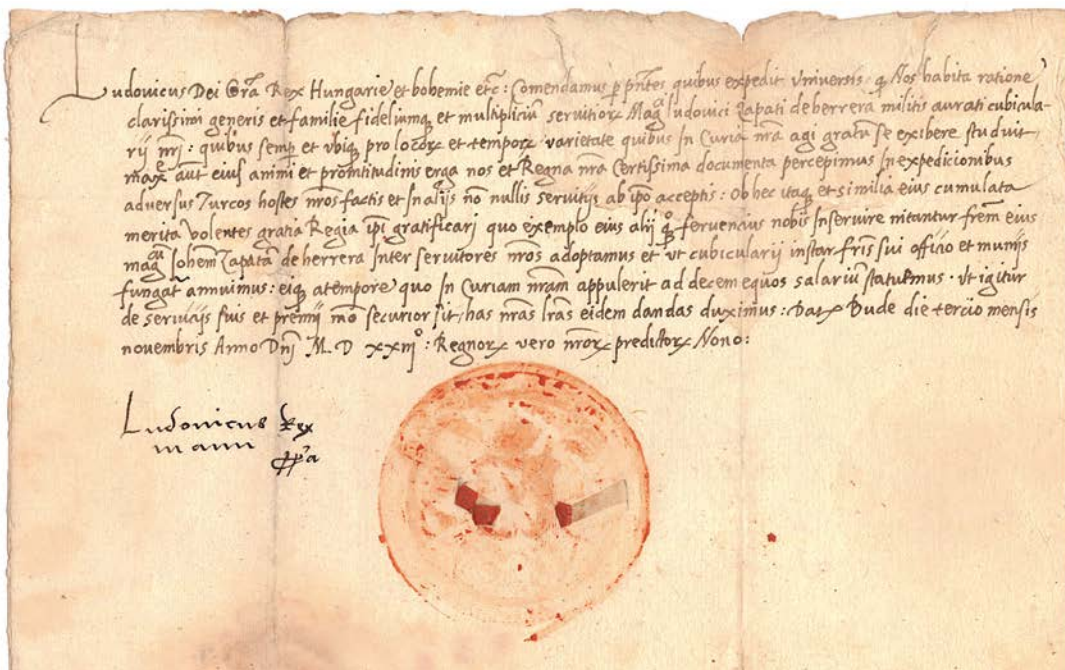 Ludovicus Dei Gra Rex Hungarie et bohemie etc: Comendamus p pntes quibus expedit Universis q Nos habita ratione
clarissimi generis et familie fideliumq et multipliciu servitior Mag ludovici Zapati de herrera militis aurati cubicula-
rij nri: quibus semp et ubiq pro locor et tempor varietate quibus in Curia nra agi gratu se exibere studuit
max aut eius animi et promtitudinis erga nos et Regna nra Certissima documenta percepimus in expedicionibus
adversus Turcos hostes nros factis et in alijs no nullis servitijs ab ipo acceptis: Ob hec itaq et similia eius cumulata
merita volentes gratia Regia ipi gratificarj quo exemplo eius alij q ferventius nobis inservire nitantur frem eius
mag Iohem Zapata de herrera inter servitores nros adoptamus et ut cubicularij instar fris sui officio et munijs
fungat annuimus: eiq a tempore quo in Curiam nram appulerit ad decem equos salariu statuimus: Ut igitur
de serviciis suis et premij mo securior sit, has nras lras eidem dandas duximus: Dat Bude die tercio mensis
novembris Anno Dnj M. D xxiijo: Regnor vero nror predictor Nono:
Ludovicus Rex
manu ppa